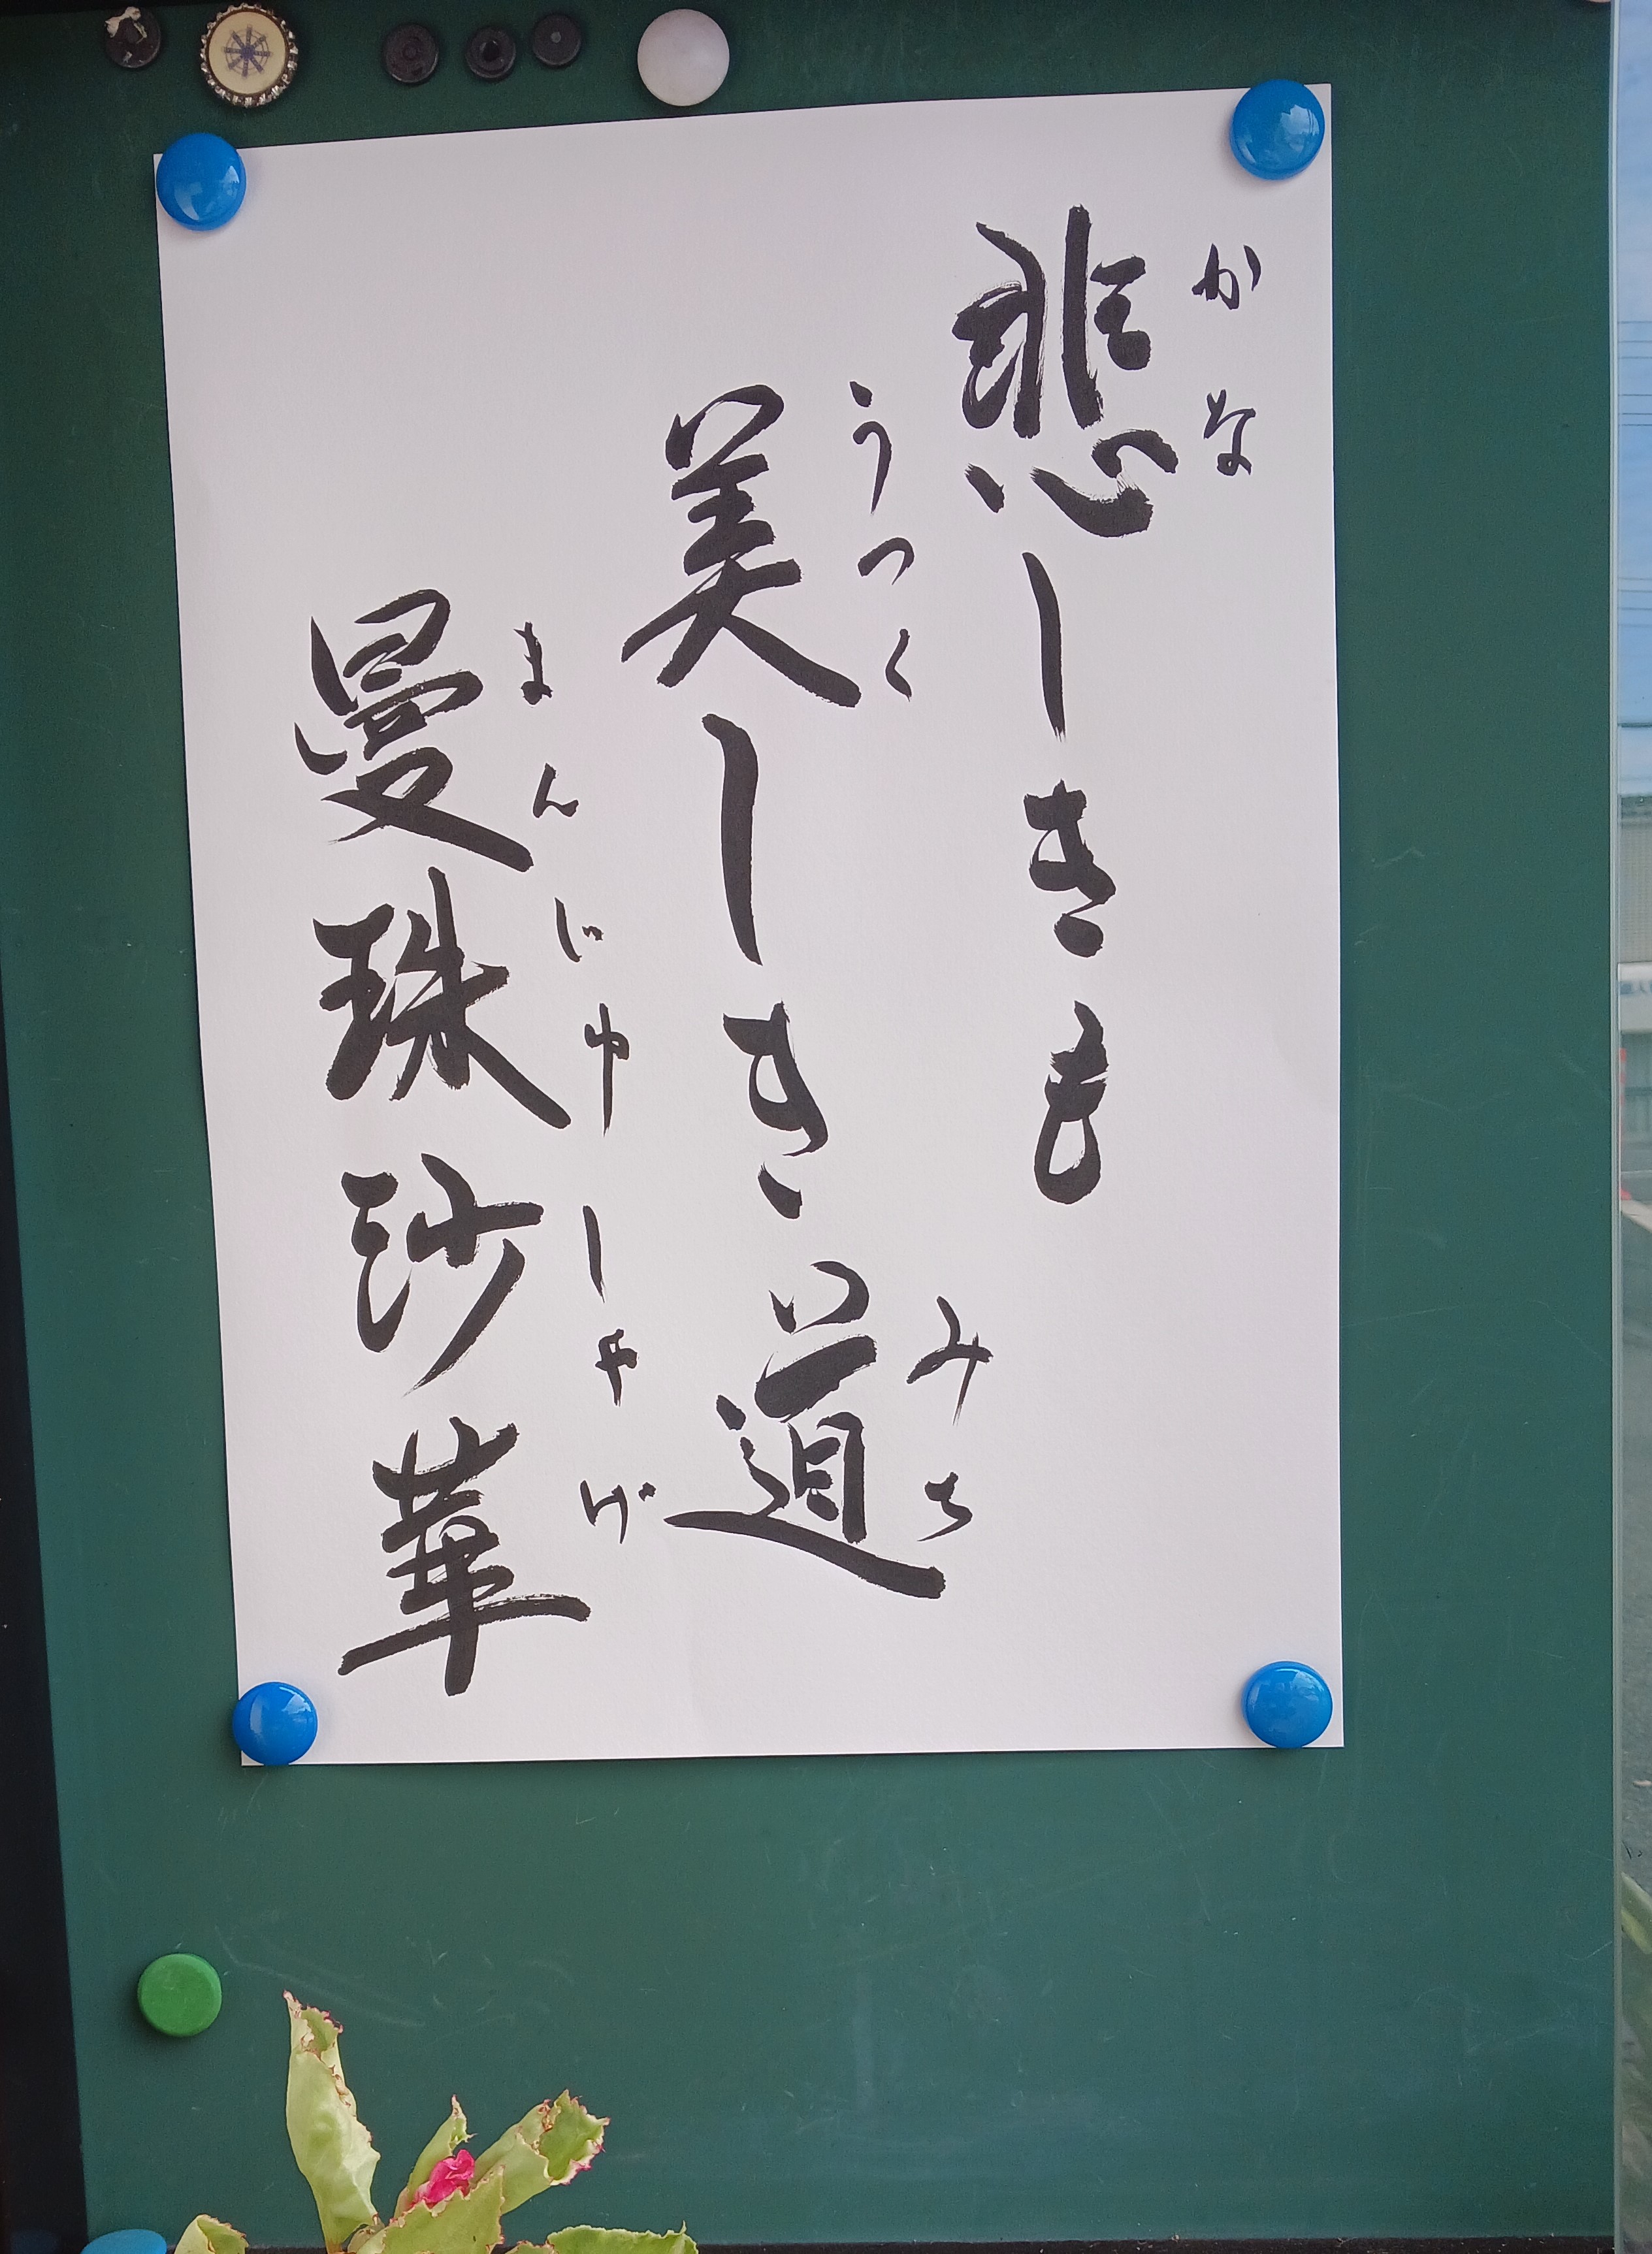 悲しきも
かな
美しき道
うつく
みち
曼珠沙華
まんじゅしゃげ